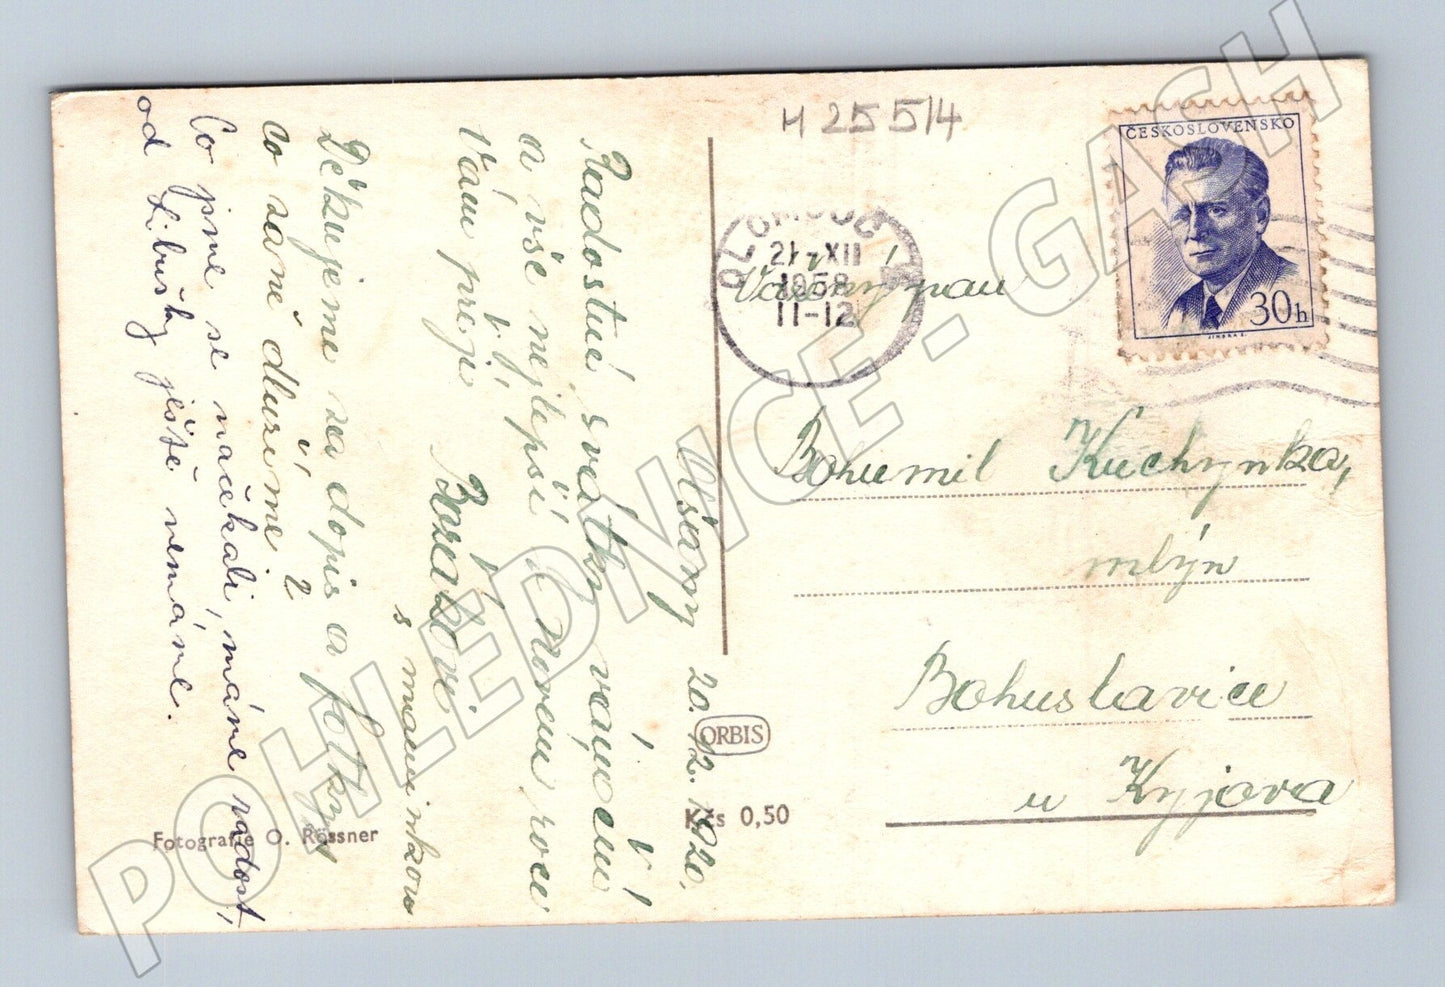 H 25514
ČESKOSLOVENSKO
30h
OLOMOUC
21.XII
1958
11-12
Vážený pan
Bohumil Kuchyňka,
mlýn
Bohuslavice
u Kyjova
ORBIS
Kčs 0,50
Fotografie O. Rössner
Olšany 20. 12. 19
Radostné svátky vánoční
a vše nejlepší v novém roce
Vám přeje
s maminkou
Děkujeme za dopis a fotky,
co za ně dlužíme?
Co jsme se načekali, máme radost,
od Libušky ještě nemáme.
POHLEDNICE - GASH